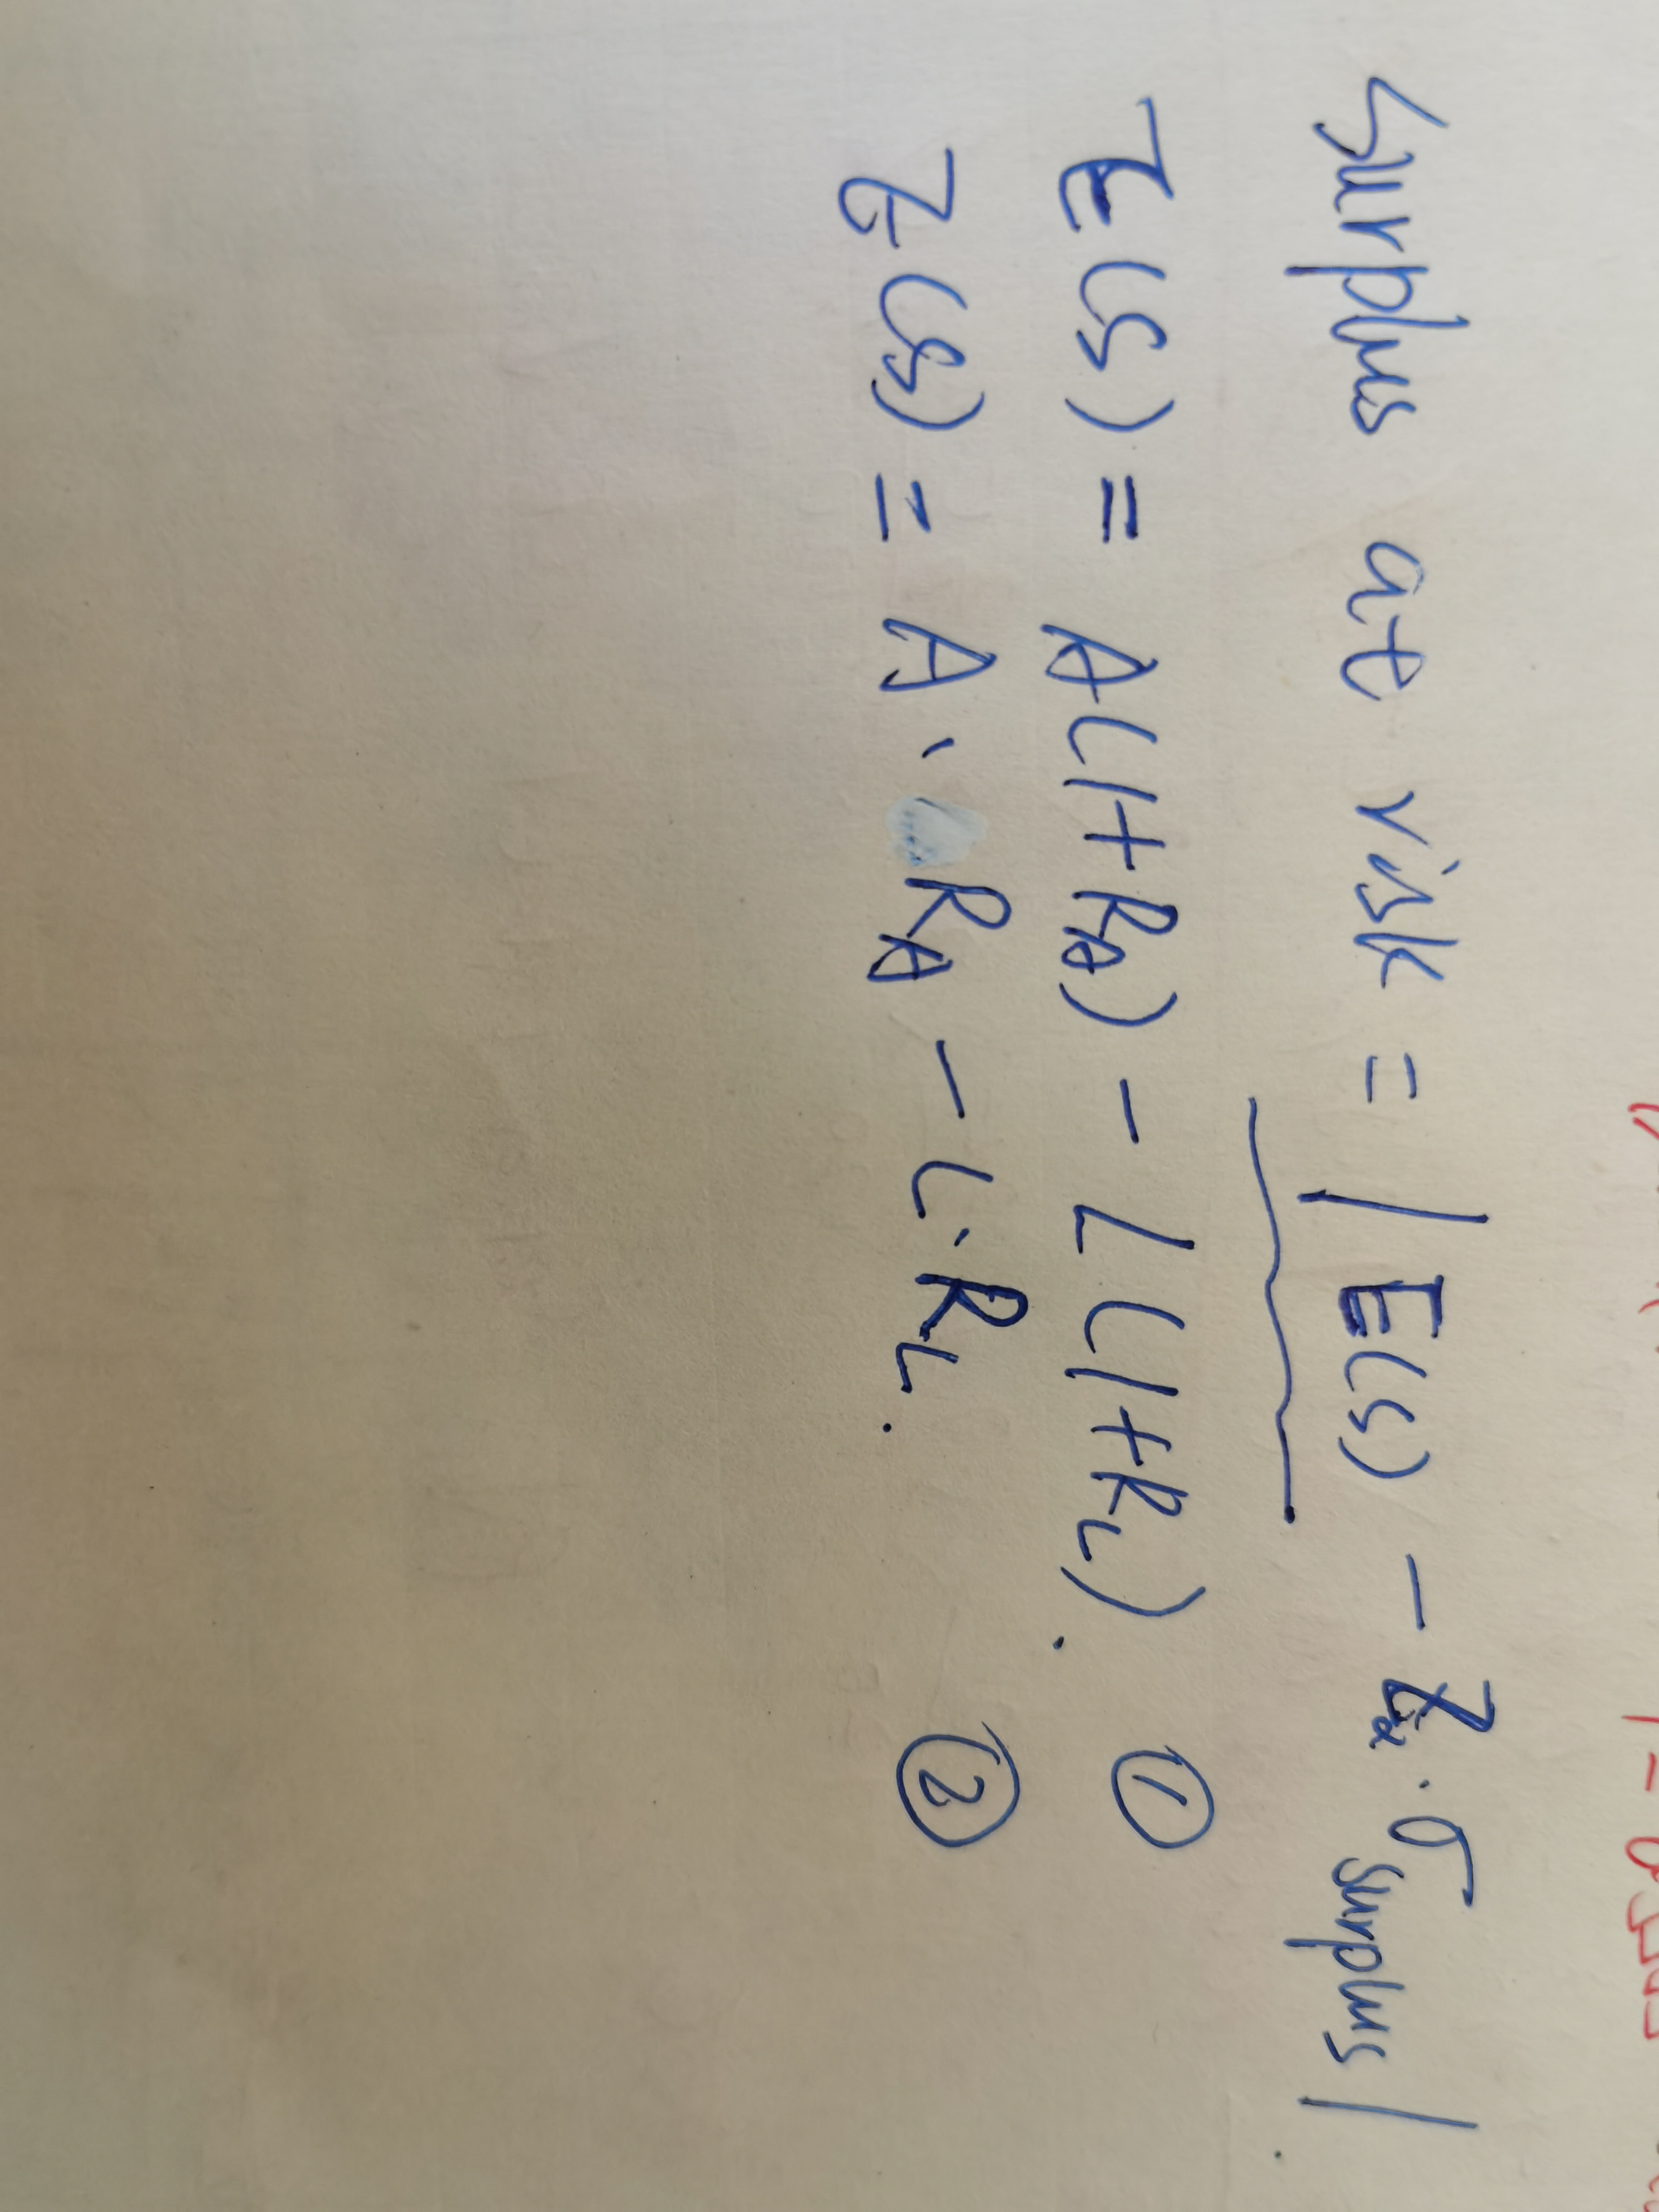 Surplus at risk = | E(S) - Zα · σ surplus |
E(S) = A(1+RA) - L(1+RL). ①
E(S) = A · RA - L·RL. ②